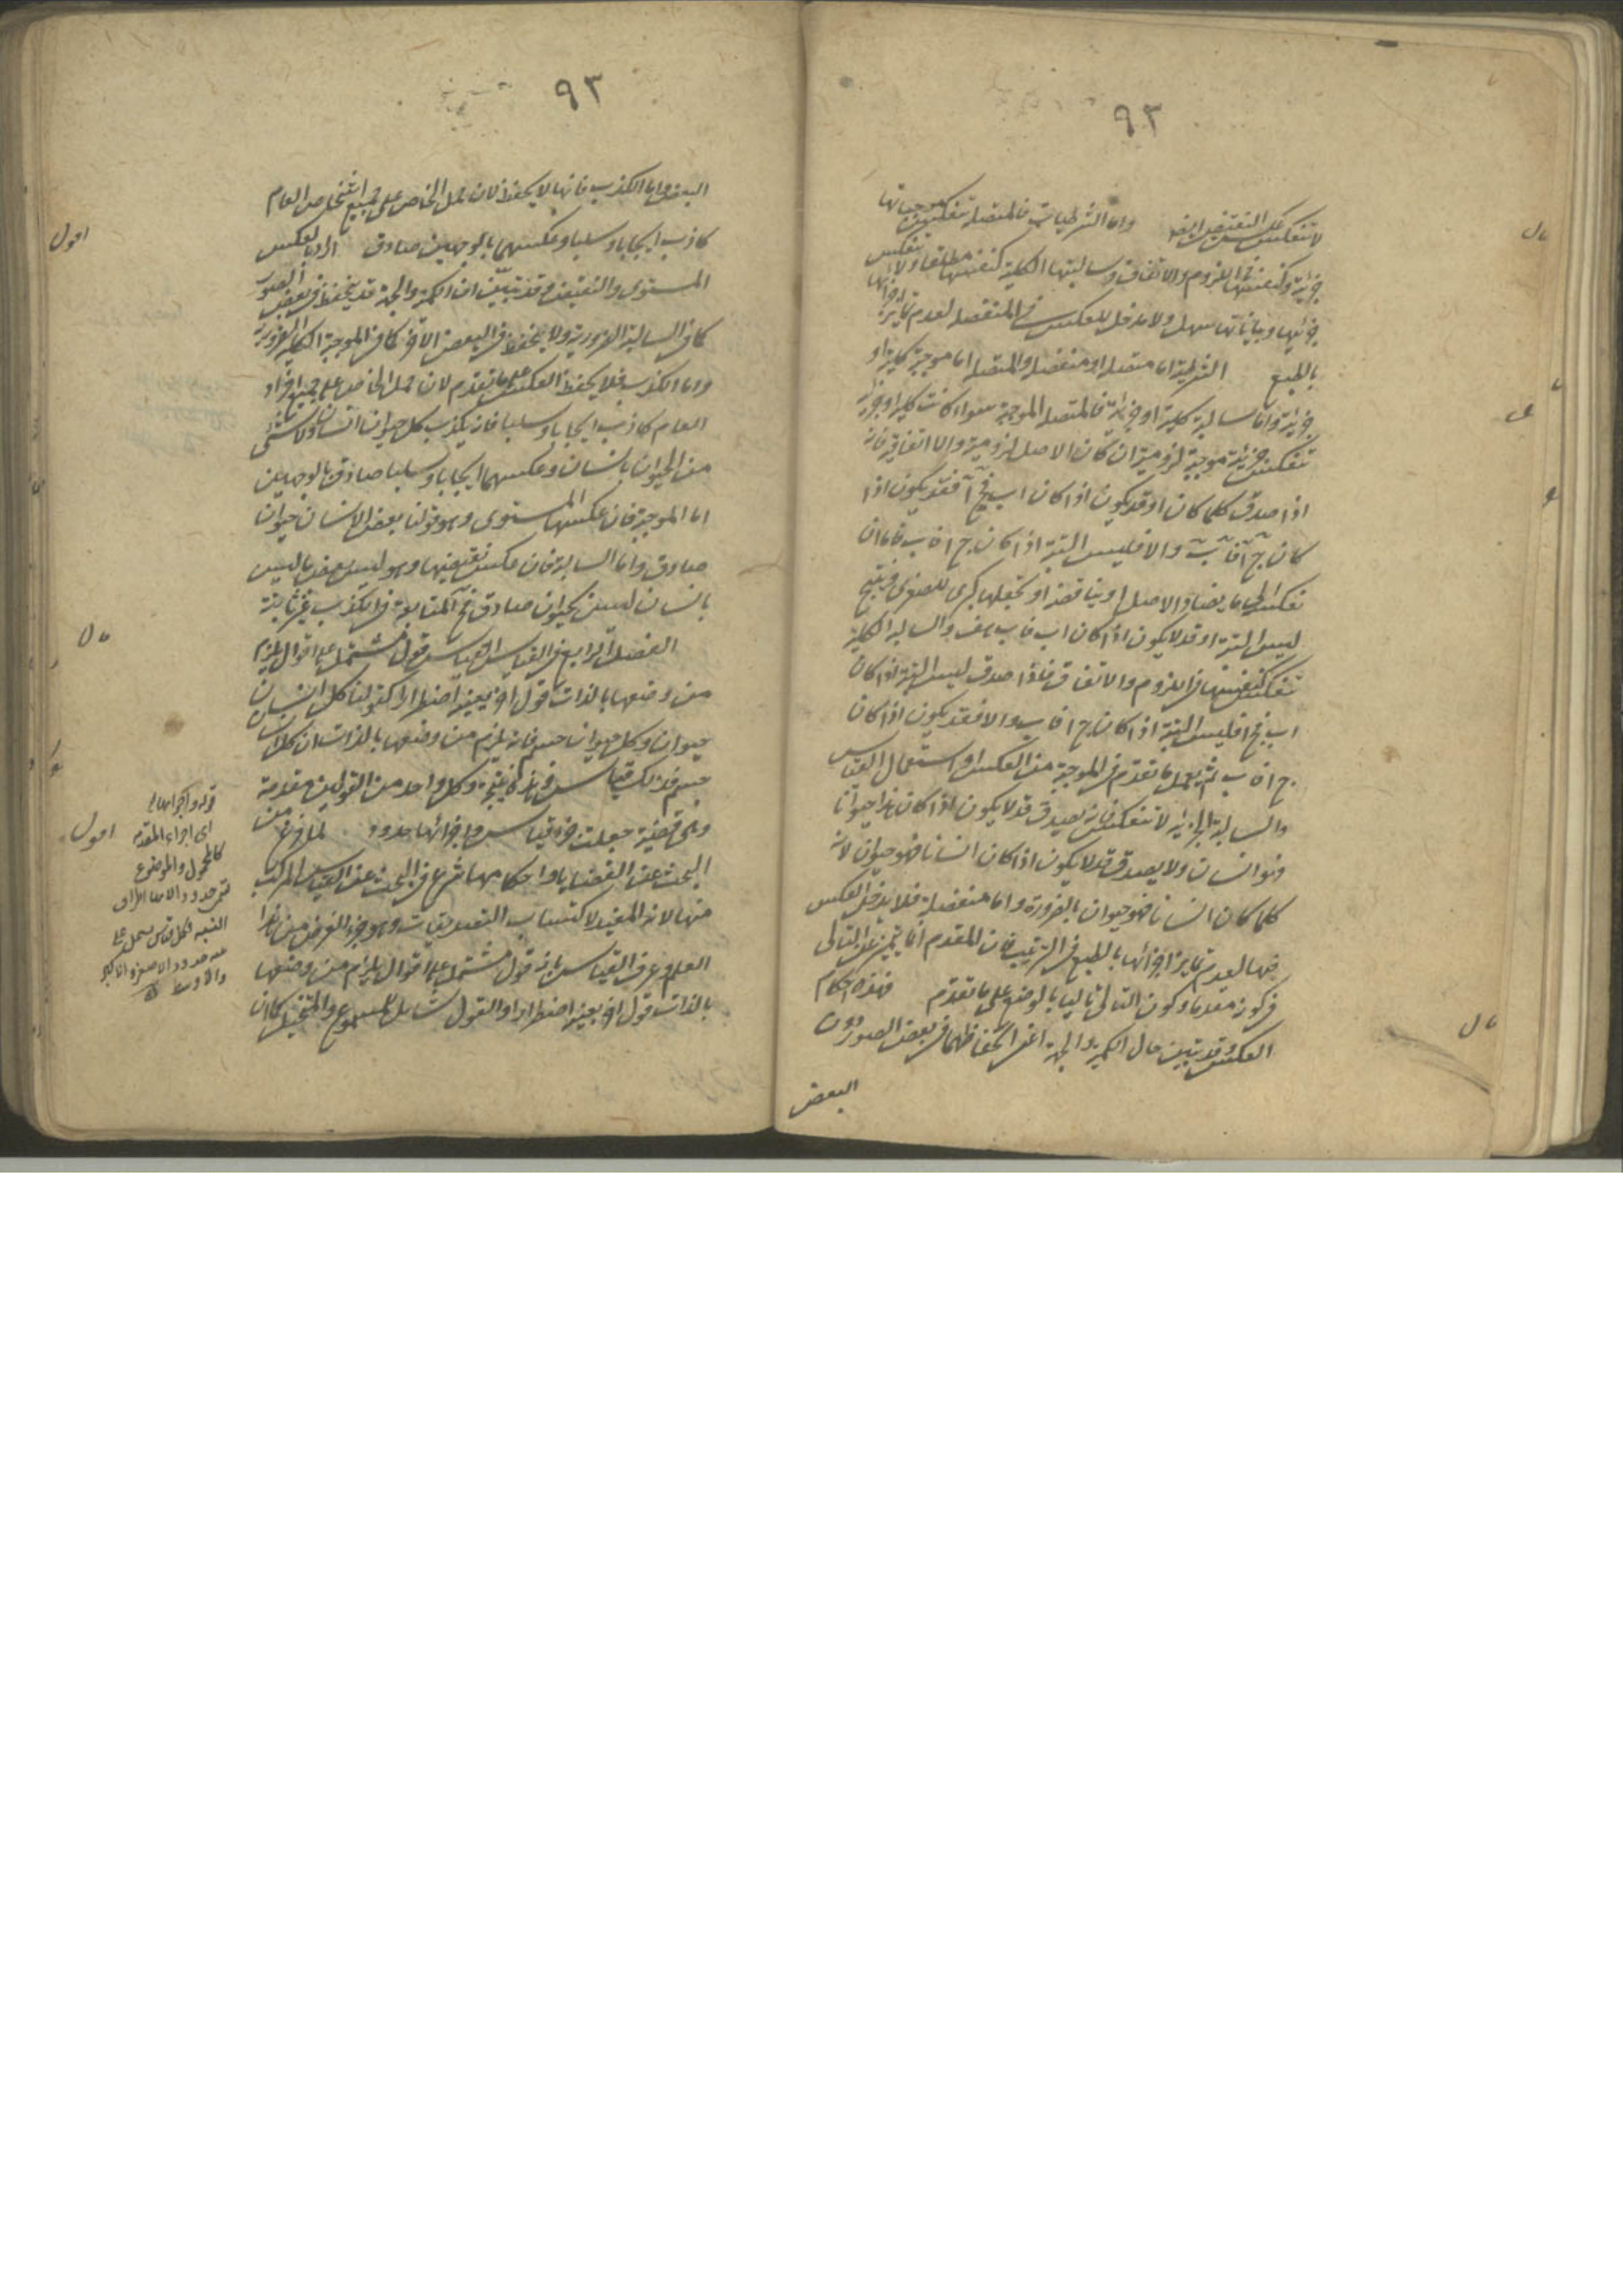 ٩٣
لا تنعكس عكس النقيض ايضه واما الشرطيات فالمتصلة تنعكس موجباتها
جزئية كنفسها فى اللزوم والاتفاق وسالبتها الكلية كنفسها مطلقا ولا تنعكس
جزئيها وبياناتها سهل ولا مدخل للعكس فى المنفصلة لعدم تمايز اجزائها
بالطبع الشرطية اما متصلة او منفصلة والمتصلة اما موجبة كلية او
جزئية واما سالبة كلية او جزئية فالمتصلة الموجبة سواء كانت كلية او جزئية
تنعكس جزئية موجبة لزومية ان كان الاصل لزومية والا اتفاقية فانه
اذا صدق كلما كان او قد يكون اذا كان اب فج آ فقد يكون اذا
كان ج آ فا ب والا فليس البتة اذا كان ج ا فا ب فاما ان
نعكس الى ما يضاد الاصل او يناقضه او نجعلها كبرى للصغرى فينتج
ليس البتة او قد لا يكون اذا كان اب فاب هف والسالبة الكلية
تنعكس كنفسها فى اللزوم والاتفاق فاذا صدق ليس البتة اذا كان
اب فج ا فليس البتة اذا كان ج ا فا ب والا فقد يكون اذا كان
ج ا فا ب ثم يعمل ما تقدم فى الموجبة من العكس او استعمال القياس
والسالبة الجزئية لا تنعكس فانه يصدق قد لا يكون اذا كان هذا حيوانا
فهو انسان ولا يصدق قد لا يكون اذا كان انسانا فهو حيوان لانه
كلما كان انسانا فهو حيوان بالضرورة واما منفصلة فلا يدخل العكس
فيها لعدم تمايز اجزائها بالطبع فى الترتيب فان المقدم انما يتميز عن التالى
فى كونه مقدما وكون التالى تاليا بالوضع على ما تقدم فهذه احكام
العكس وقد تبين حال الكمية والجهة اعنى انحفاظهما فى بعض الصور دون
البعض
قال
اقول
قال
٩٣
البعض واما الكذب فانها لا يحفظ لان حمل الخاص على جميع اشخاص العام
كاذب ايجابا وسلبا وعكسهما بالوجهين صادق اراد بالعكس
المستوى والنقيض وقد تبيّن ان الكمية والجهة قد ينحفظ فى بعض الصور
كما فى السالبة الضرورية ولا ينحفظ فى البعض الاخر كما فى الموجبة الكلية الضرورية
واما الكذب فلا يحفظ العكس على ما تقدم لان حمل الخاص على جميع افراد
العام كاذب ايجابا وسلبا فانه يكذب كل حيوان انسان ولا شئ
من الحيوان بانسان وعكسهما ايجابا وسلبا صادق بالوجهين
اما الموجبة فان عكسها المستوى وهو قولنا بعض الانسان حيوان
صادق واما السالبة فان عكس نقيضها وهو ليس بعض ما ليس
بانسان ليس بحيوان صادق فج المتابعة فى الكذب غير ثابتة
الفصل الرابع فى القياس القياس قول مشتمل على اقوال يلزم
من وضعها بالذات قول اخر بعينه اضطرارا كقولنا كل انسان
حيوان وكل حيوان جسم فانه يلزم من وضعها بالذات ان كل انسان
جسم فذلك قياس وهذا نتيجة وكل واحد من القولين مقدمة
وهى قضية جعلت جزء قياس واجزائها حدود لما فرغ من
البحث عن القضايا واحكامها شرع فى البحث عن القياس المركب
منها لانه المفيد لاكتساب التصديقات وهو جزء الغرض من هذا
العلم وعرف القياس بانه قول مشتمل على اقوال يلزم من وضعها
بالذات قول اخر بعينه اضطرارا والقول شامل للمسموع والمتخيل كما ان
اقول
قال
اقول
قوله واجزائها
اى اجزاء المقدمة
كالمحمول والموضوع
تسمى حدودا لانها اطراف
النسبة فكل قياس يشتمل على
حدود الاصغر والاكبر
والاوسط